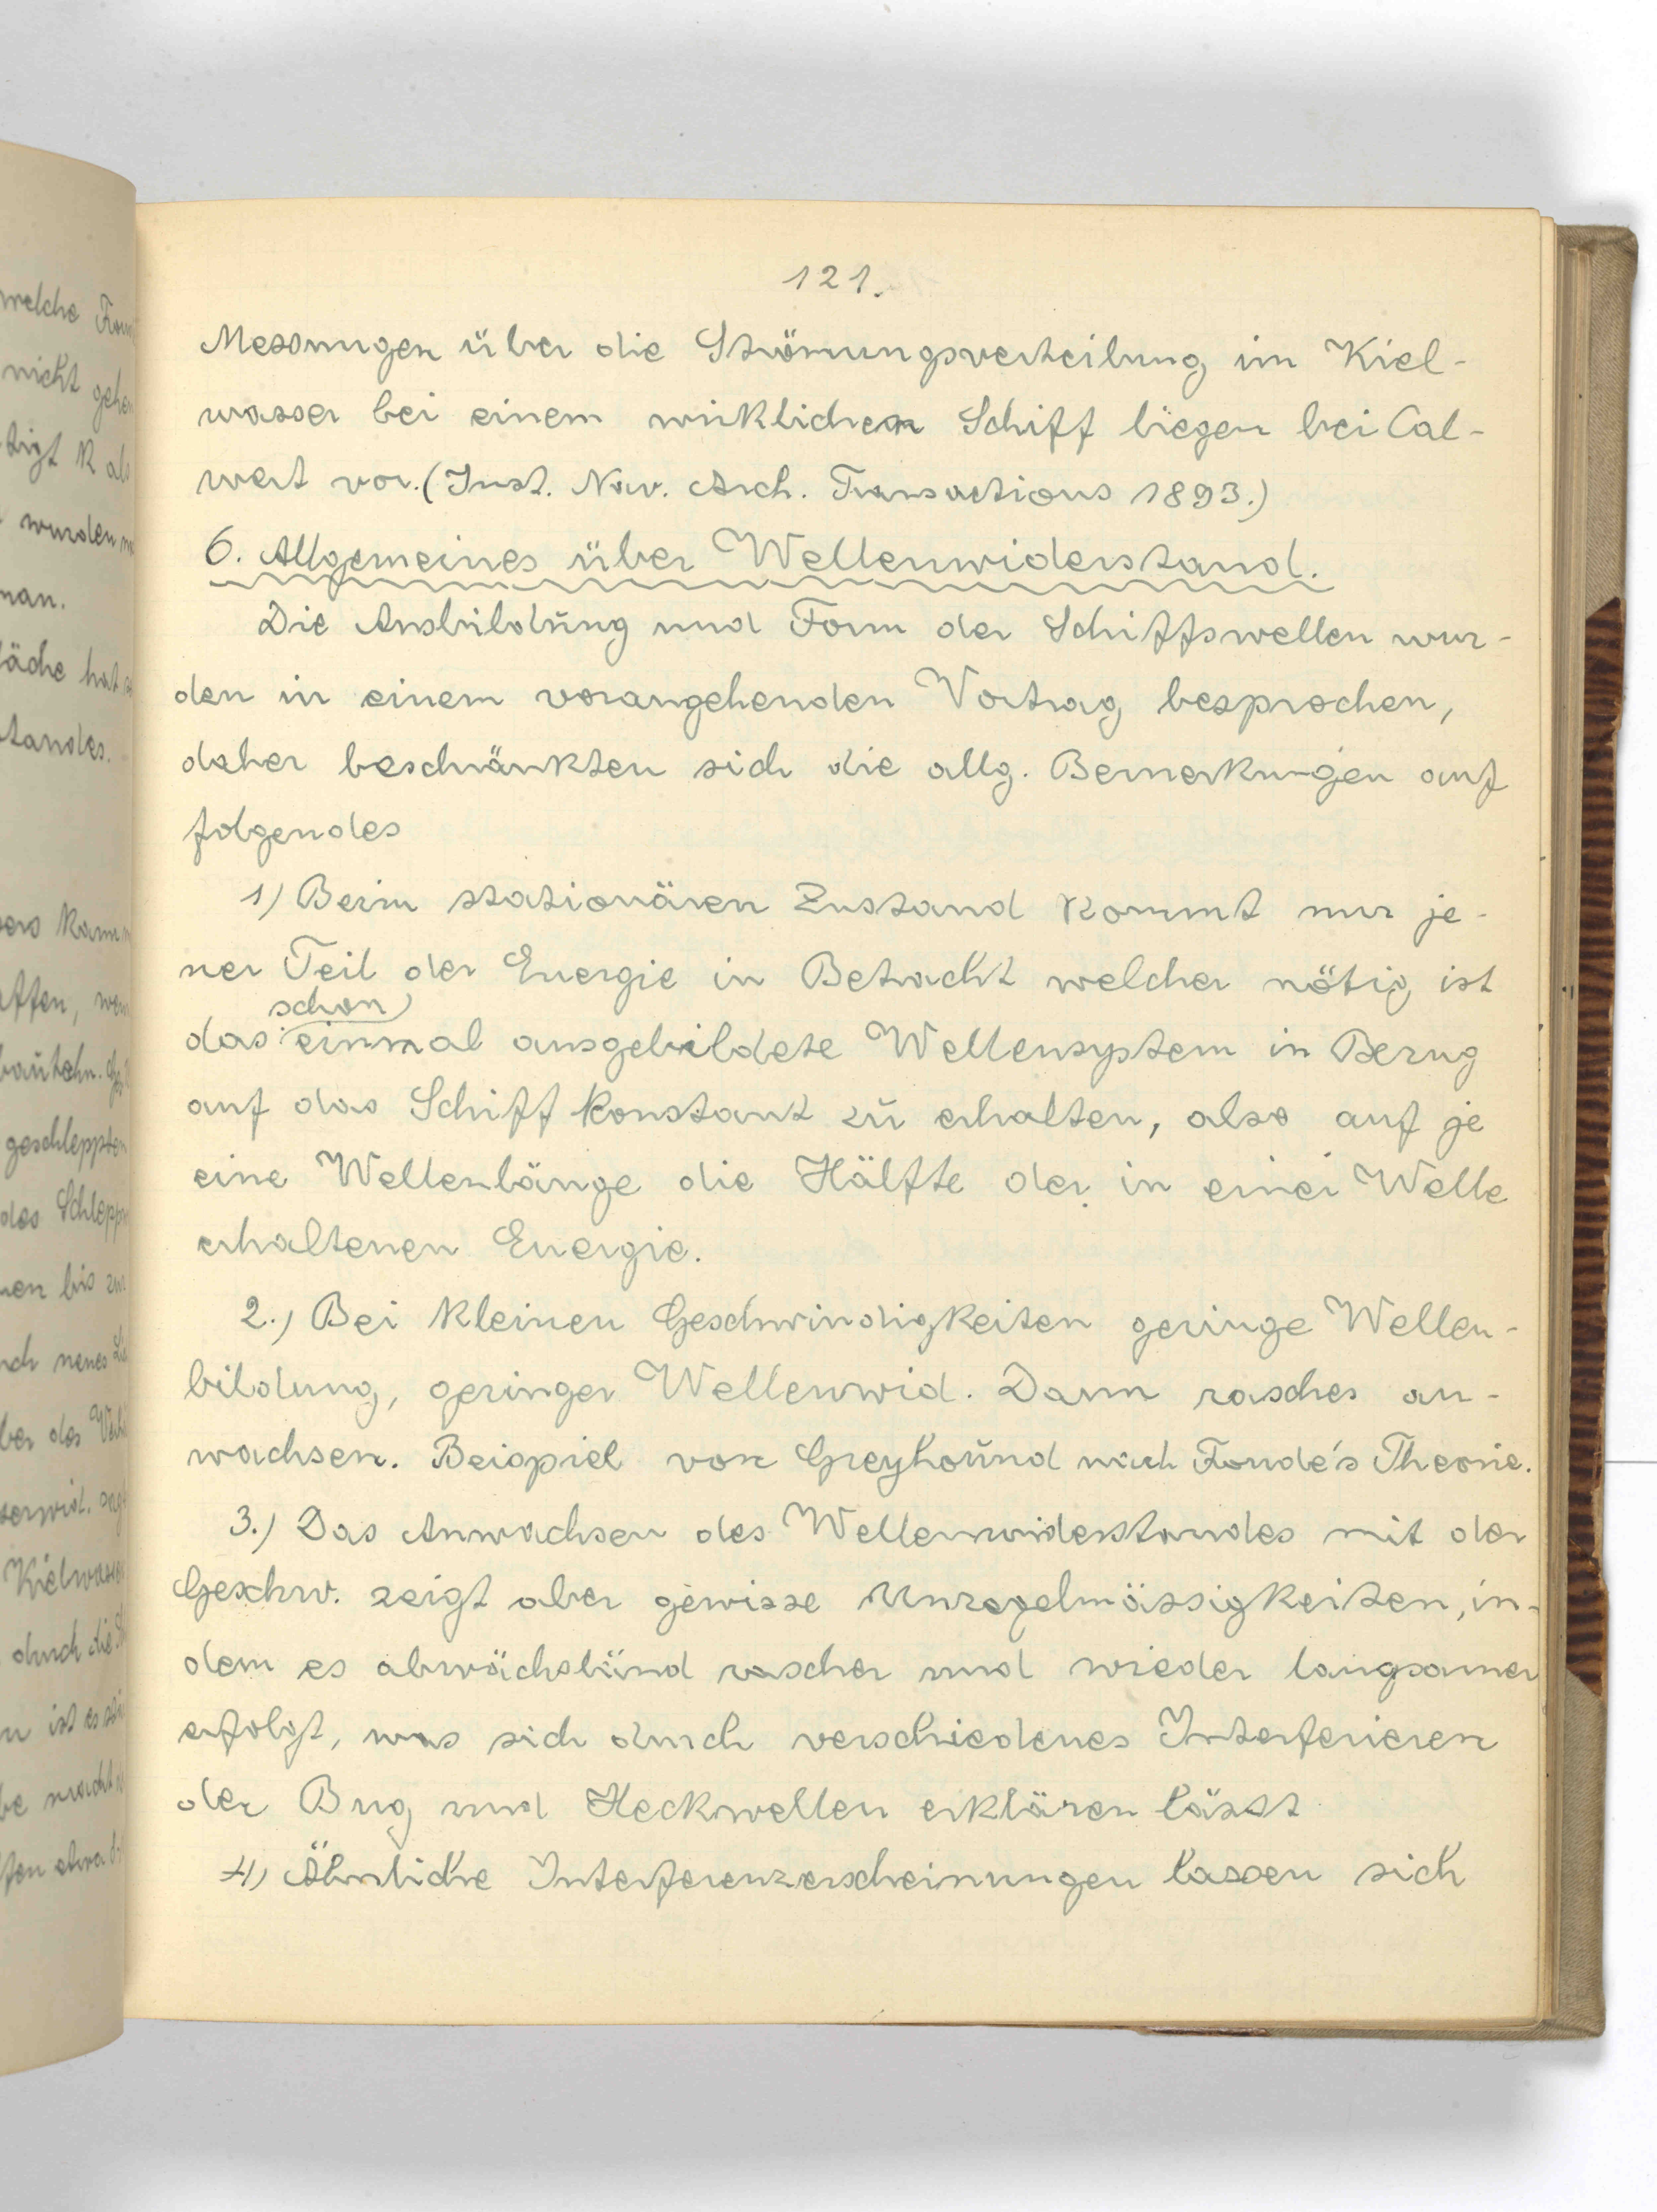 121.
Messungen über die Strömungsverteilung im Kiel-
wasser bei einem wirklichen Schiff liegen bei Cal-
vert vor. (Inst. Nav. Arch. Transactions 1893.)
6. Allgemeines über Wellenwiderstand.
Die Ausbildung und Form der Schiffswellen wur-
den in einem vorangehenden Vortrag besprochen,
daher beschränkten sich die allg. Bemerkungen auf
folgendes
1) Beim stationären Zustand kommt nur je-
ner Teil der Energie in Betracht welcher nötig ist
das schon einmal ausgebildete Wellensystem in Bezug
auf das Schiff konstant zu erhalten, also auf je
eine Wellenlänge die Hälfte der in einer Welle
erhaltenen Energie.
2.) Bei kleinen Geschwindigkeiten geringe Wellen-
bildung, geringer Wellenwid. Dann rasches an-
wachsen. Beispiel von Greyhound nach Froude's Theorie.
3.) Das Anwachsen des Wellenwiderstandes mit der
Geschw. zeigt aber gewisse Unregelmässigkeiten, in-
dem es abwächslünd rascher und wieder langsamer
erfolgt, was sich durch verschiedenes Interferieren
der Bug und Heckwellen erklären lässt
4) Ähnliche Interferenzerscheinungen lassen sich